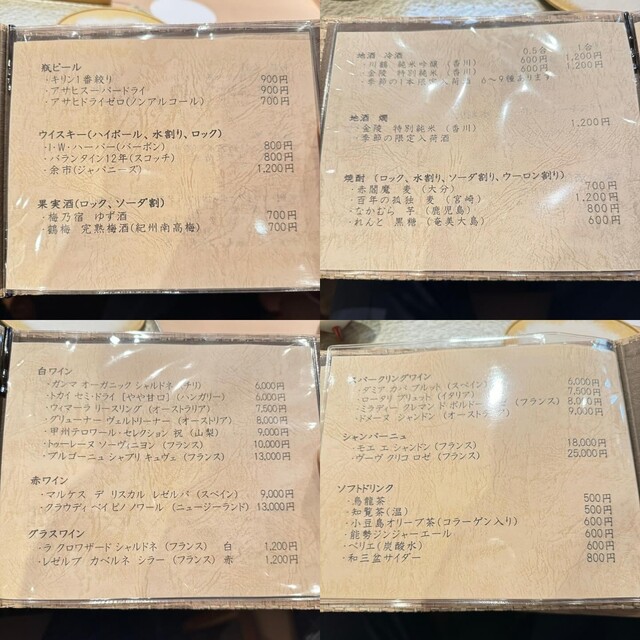 瓶ビール
・キリン1番絞り 900円
・アサヒスーパードライ 900円
・アサヒドライゼロ(ノンアルコール) 700円
ウイスキー(ハイボール、水割り、ロック)
・I・W・ハーパー(バーボン) 800円
・バランタイン12年(スコッチ) 800円
・余市(ジャパニーズ) 1,200円
果実酒(ロック、ソーダ割)
・梅乃宿 ゆず酒 700円
・鶴梅 完熟梅酒(紀州南高梅) 700円
地酒 冷酒 0.5合 1合
・川鶴 純米吟醸 (香川) 600円 1,200円
・金陵 特別純米 (香川) 600円 1,200円
・季節の1本限 入荷酒 6～9種あります
地酒 燗
・金陵 特別純米 (香川) 1,200円
・季節の限定入荷酒
焼酎 (ロック、水割り、ソーダ割り、ウーロン割り)
・赤閻魔 麦 (大分) 700円
・百年の孤独 麦 (宮崎) 1,200円
・なかむら 芋 (鹿児島) 800円
・れんと 黒糖 (奄美大島) 600円
白ワイン
・ガンマ オーガニック シャルドネ チリ) 6,000円
・トカイ セミ・ドライ [やや甘口] (ハンガリー) 6,000円
・ウィマーラ リースリング (オーストラリア) 7,500円
・グリューナー ヴェルトリーナー (オーストリア) 8,000円
・甲州テロワール・セレクション 祝 (山梨) 9,000円
・トゥーレーヌ ソーヴィニヨン (フランス) 10,000円
・アルゴーニュ シャブリ キュヴェ (フランス) 13,000円
赤ワイン
・マルケス デ リスカル レゼルバ (スペイン) 9,000円
・クラウディ ベイ ピノ ノワール (ニュージーランド) 13,000円
グラスワイン
・ラ クロワザード シャルドネ (フランス) 白 1,200円
・レゼルブ カベルネ シラー (フランス) 赤 1,200円
パークリングワイン
・デミア カバ ブルット (スペイン) 6,000円
・ロータリ ブリュット (イタリア) 7,500円
・ミラディー クレマン ド ボルドー (フランス) 8,000円
・ドメーヌ シャンドン (オーストラ 9,000円
シャンパーニュ
・モエ エ シャンドン (フランス) 18,000円
・ヴーヴ クリコ ロゼ (フランス) 25,000円
ソフトドリンク
・烏龍茶 500円
・知覧茶(温) 500円
・小豆島オリーブ茶(コラーゲン入り) 600円
・能勢ジンジャーエール 600円
・ペリエ(炭酸水) 600円
・和三盆サイダー 800円